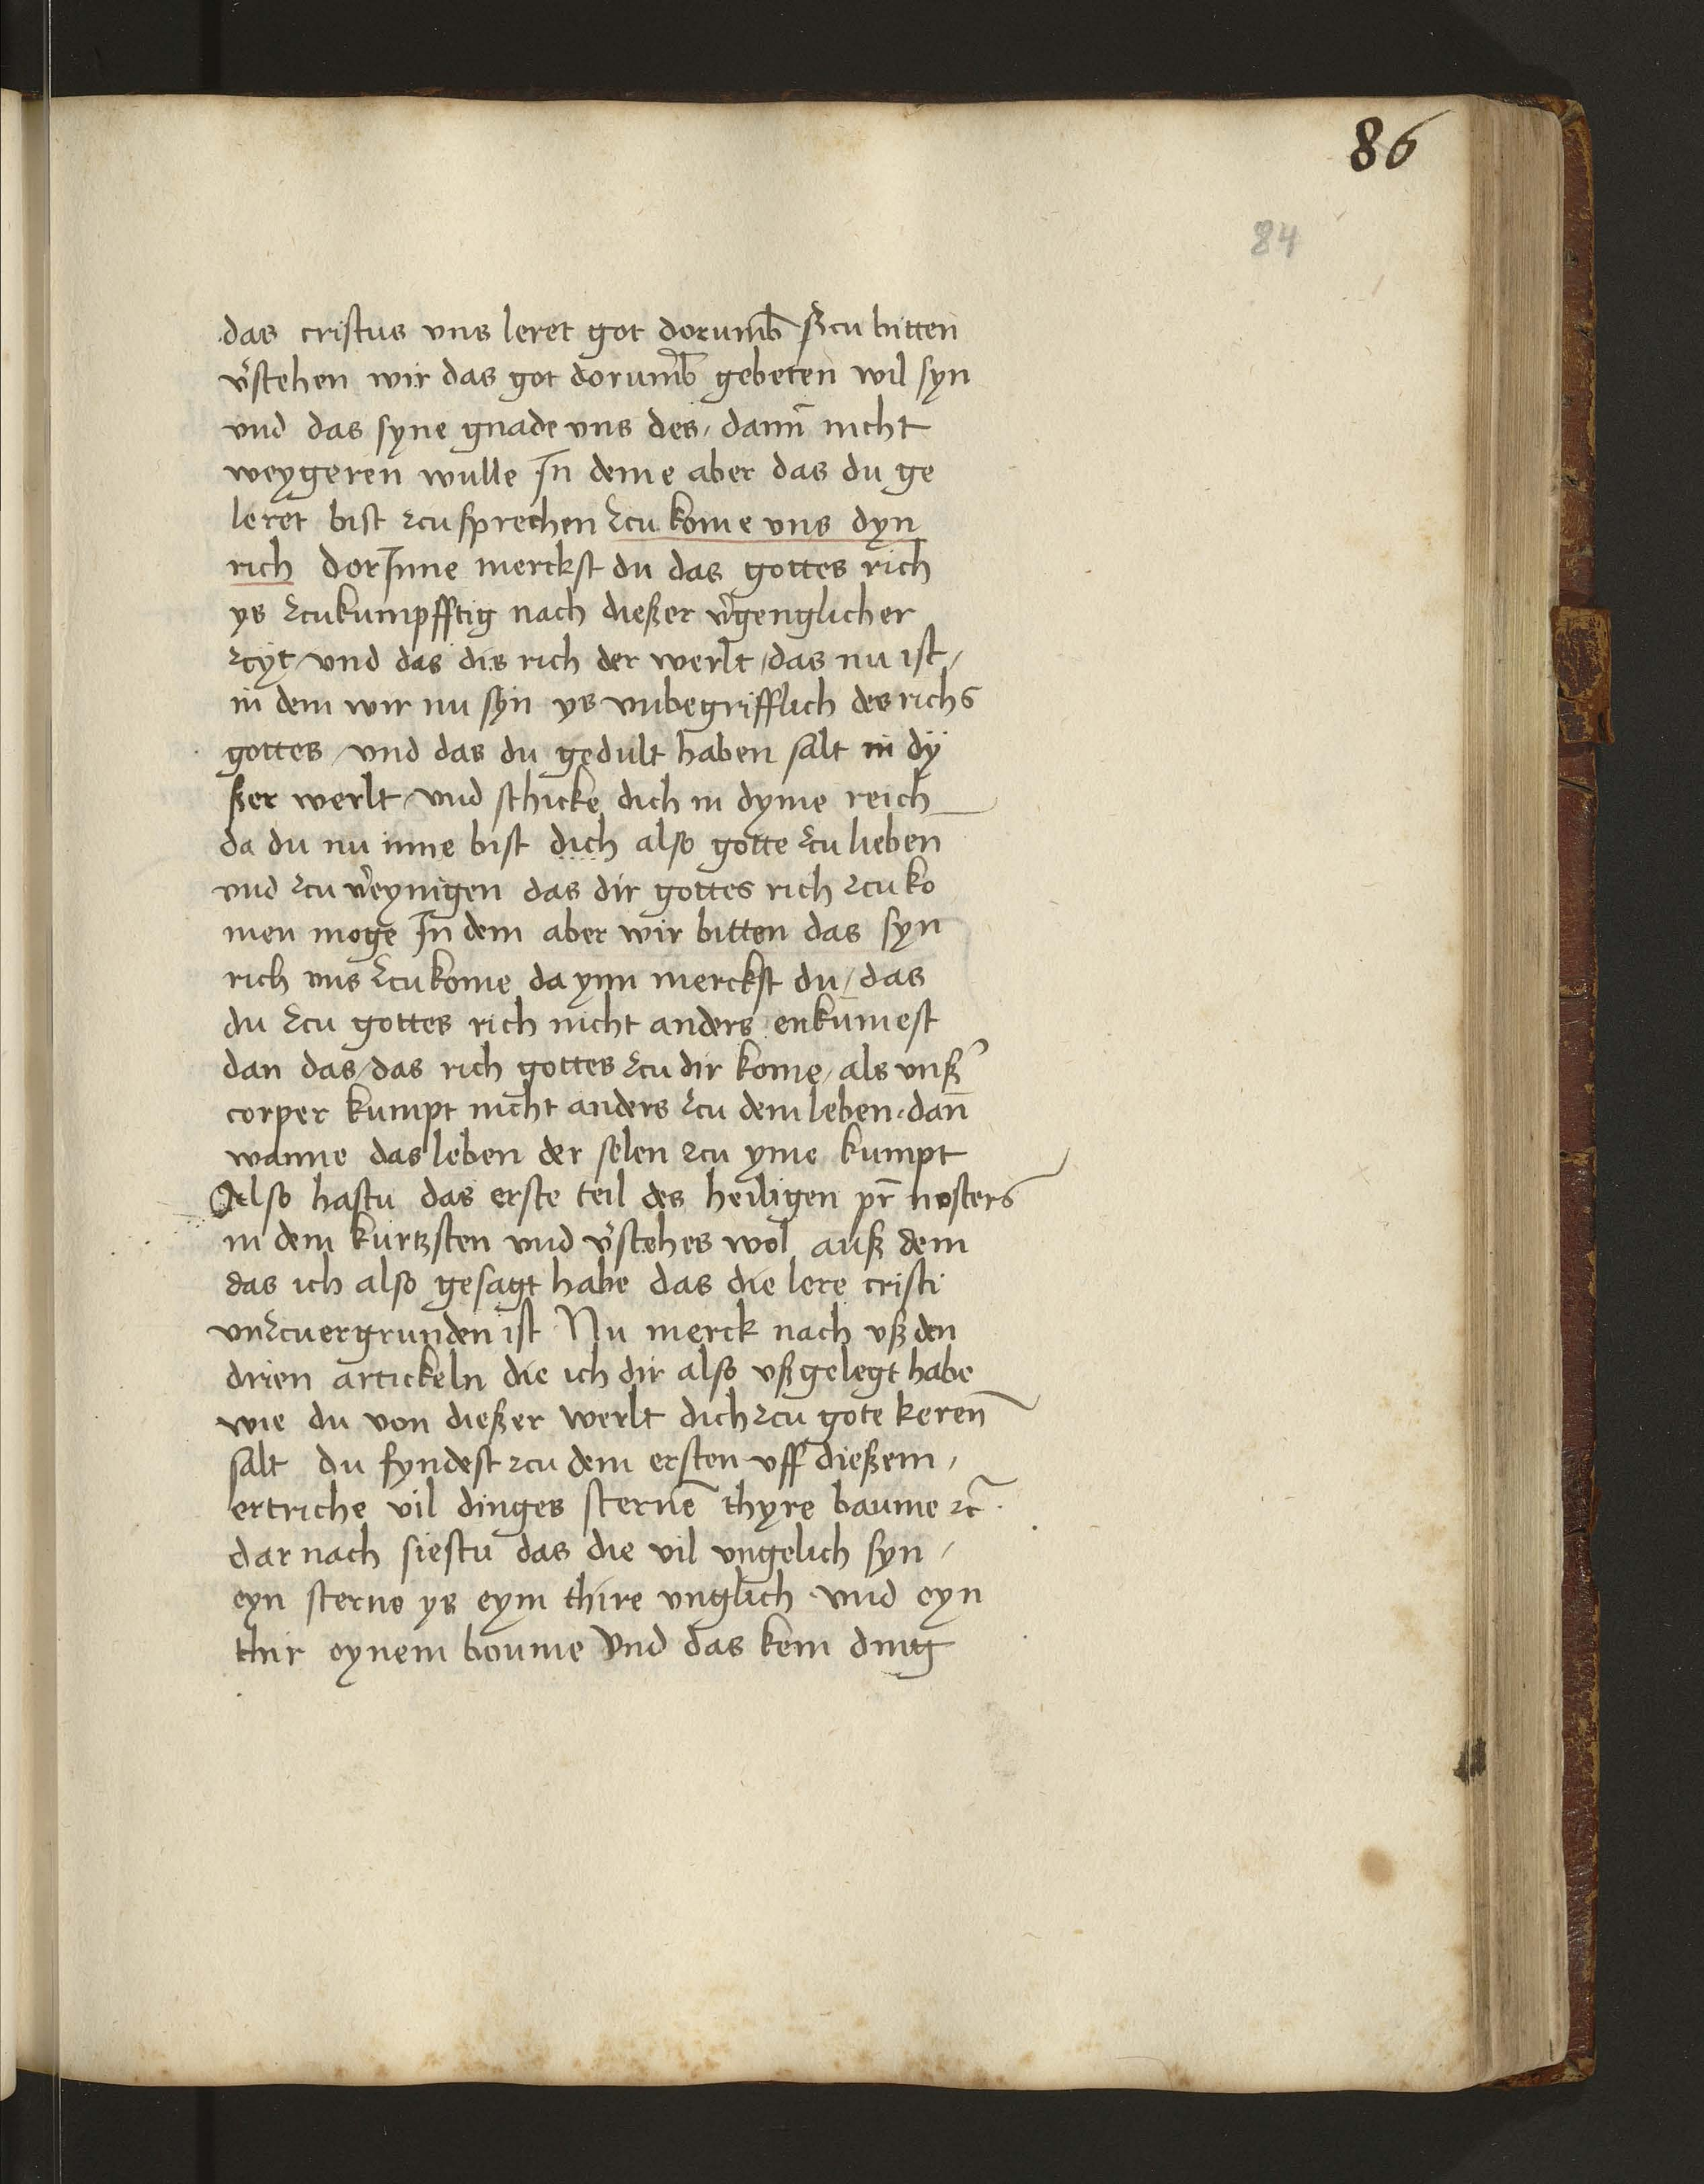 86
84
das cristus vns leret got dorumb̄ ʒcu bitten
v̉stehen wir das got dorumb̄ gebeten wil syn
vnd das syne gnade vns des / dann̄ nicht
weygeren wulle In deme aber das du ge
leret bist zcu sprechen zcu kome vns dyn
rich dorInne merckst du das gottes rich
ys zcukumpfftig nach dießer v̉genglicher
zcÿt / vnd das dis rich der werlt / das nu ist /
in dem wir nu sÿn ys vnbegrifflich des richs
gottes / vnd das du gedult haben salt in dÿ
ßer werlt / vnd schicke dich in dyme reich
da du nu inne bist dich also gotte zcu lieben
vnd zcu v̉eynigen das dir gottes rich zcu ko
men moge In dem aber wir bitten das syn
rich vns zcu kome da ynn merckst du / das
du zcu gottes rich nicht anders enkumest
dan das / das rich gottes zcu dir kome / als vnß̉
corper kumpt nicht anders zcu dem leben / dan̄
wanne das leben der selen zcu yme kumpt
Also hastu das erste teil des heiligen pr̄ nosters
in dem kurtzsten vnd v̉stehes wol auß dem
das ich also gesagt habe das die lere cristi
vnzcuergrunden ist Nu merck nach vß den
drien artickeln die ich dir also vßgelegt habe
wie du von dießer werlt dich zcu gote keren̄
salt du fyndest zcu dem ersten vff dießem /
ertriche vil dinges sterne᷑ thyre baume ⁊c̄ .
dar nach siestu das die vil vngelich syn /
eyn sterne ys eym thire vnglich vnd eyn
thir eynem boume Vnd das kein ding